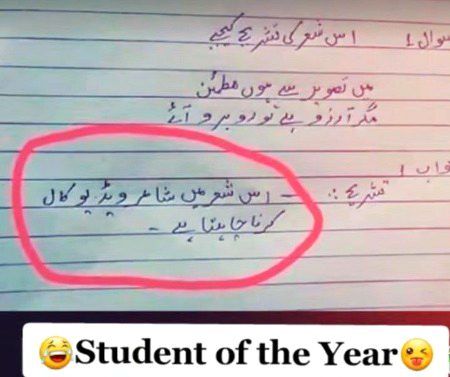 سوال 1 اس شعر کی تشریح کیجیے
میں تصویر سے ہوں مطمئن
مگر آرزو ہے تو روبرو آئے
جواب 1
تشریح :- اس شعر میں شاعر ویڈیو کال
کرنا چاہتا ہے -
😂Student of the Year😜